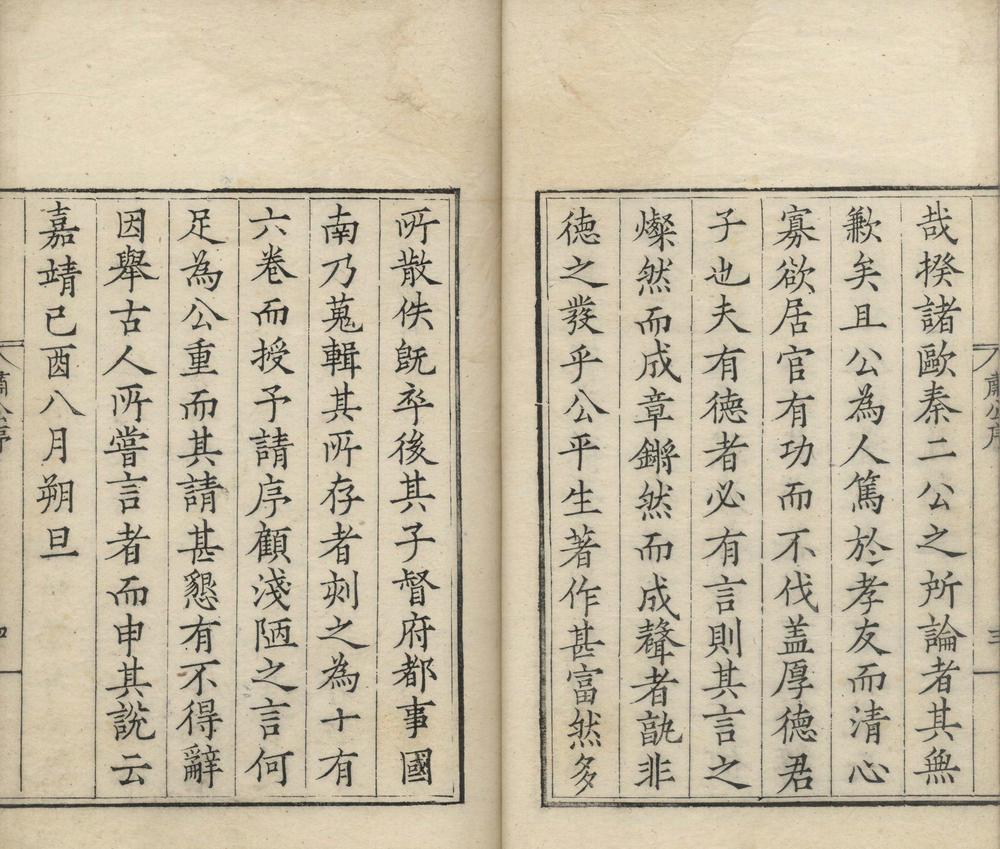 哉揆諸歐秦二公之所論者其無
歉矣且公為人篤於孝友而清心
寡欲居官有功而不伐盖厚德君
子也夫有德者必有言則其言之
燦然而成章鏘然而成聲者孰非
徳之發乎公平生著作甚富然多
所散佚旣卒後其子督府都事國
南乃蒐輯其所存者刻之為十有
六卷而授予請序顧淺陋之言何
足為公重而其請甚懇有不得辭
因舉古人所嘗言者而申其說云
嘉靖己酉八月朔旦